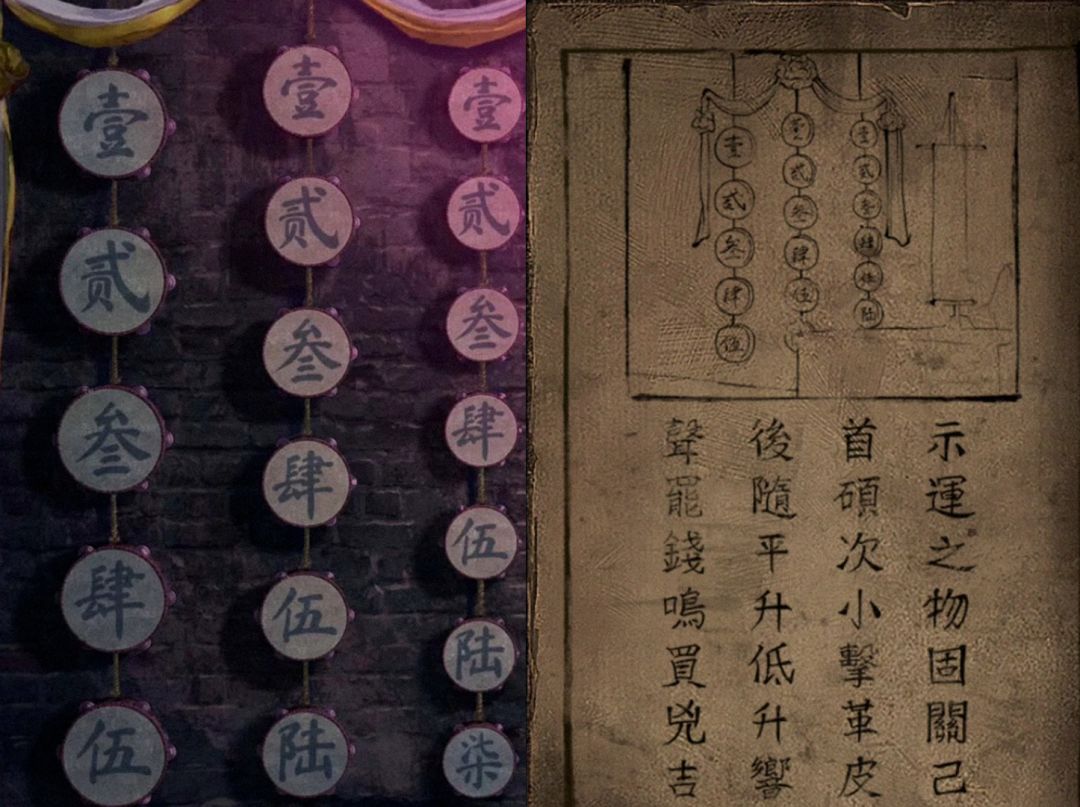 壹贰叁肆伍
壹贰叁肆伍陆
壹贰叁肆伍陆柒
壹贰叁肆伍
壹贰叁肆伍
壹贰叁肆伍陆
示運之物固關己
首碩次小擊革皮
後隨平升低升響
聲罷錢鳴買兇吉